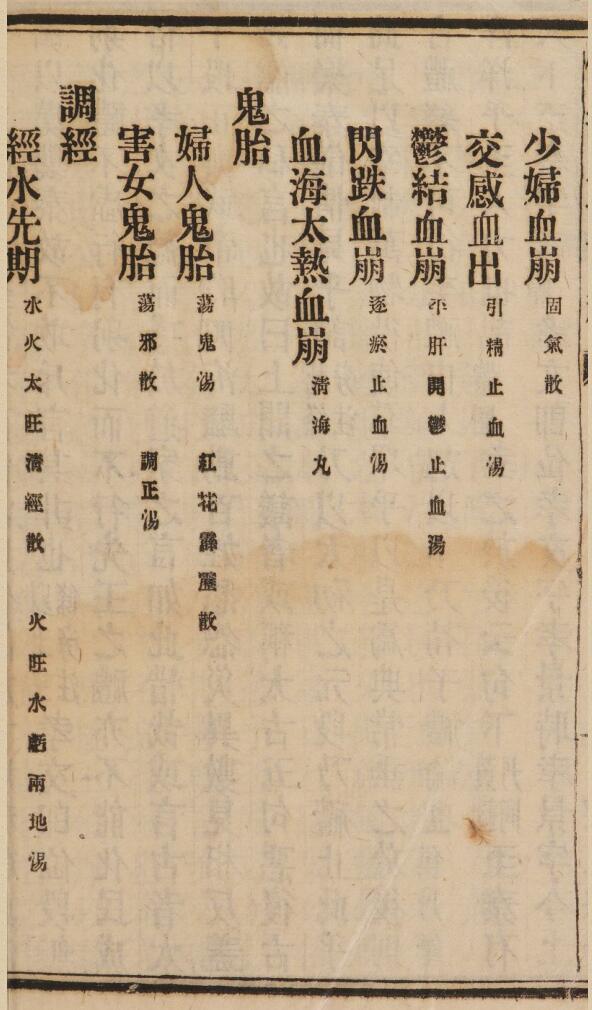 少婦血崩 固氣散
交感血出 引精止血湯
鬱結血崩 平肝開鬱止血湯
閃跌血崩 逐瘀止血湯
血海太熱血崩 清海丸
鬼胎
婦人鬼胎 蕩鬼湯 紅花霹靂散
害女鬼胎 蕩邪散 調正湯
調經
經水先期 水火太旺清經散 火旺水虧兩地湯